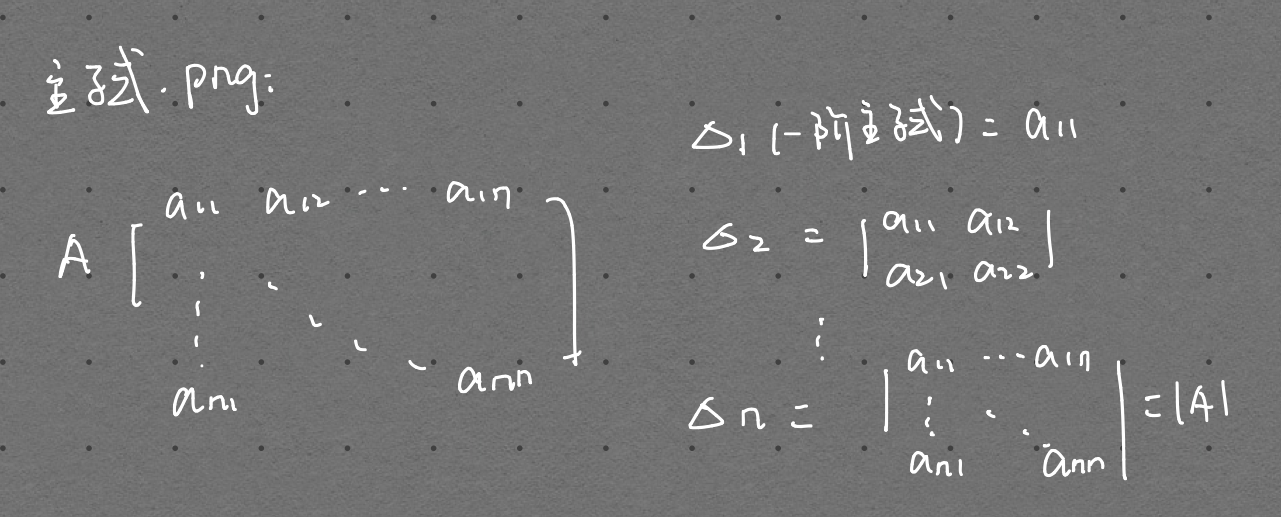 主子式.png:
A [ a11 a12 ··· a1n
⋮ ⋱
an1 ann ]
Δ1 (一阶主子式) = a11
Δ2 = | a11 a12
a21 a22 |
⋮
Δn = | a11 ··· a1n
⋮ ⋱
an1 ann | = |A|